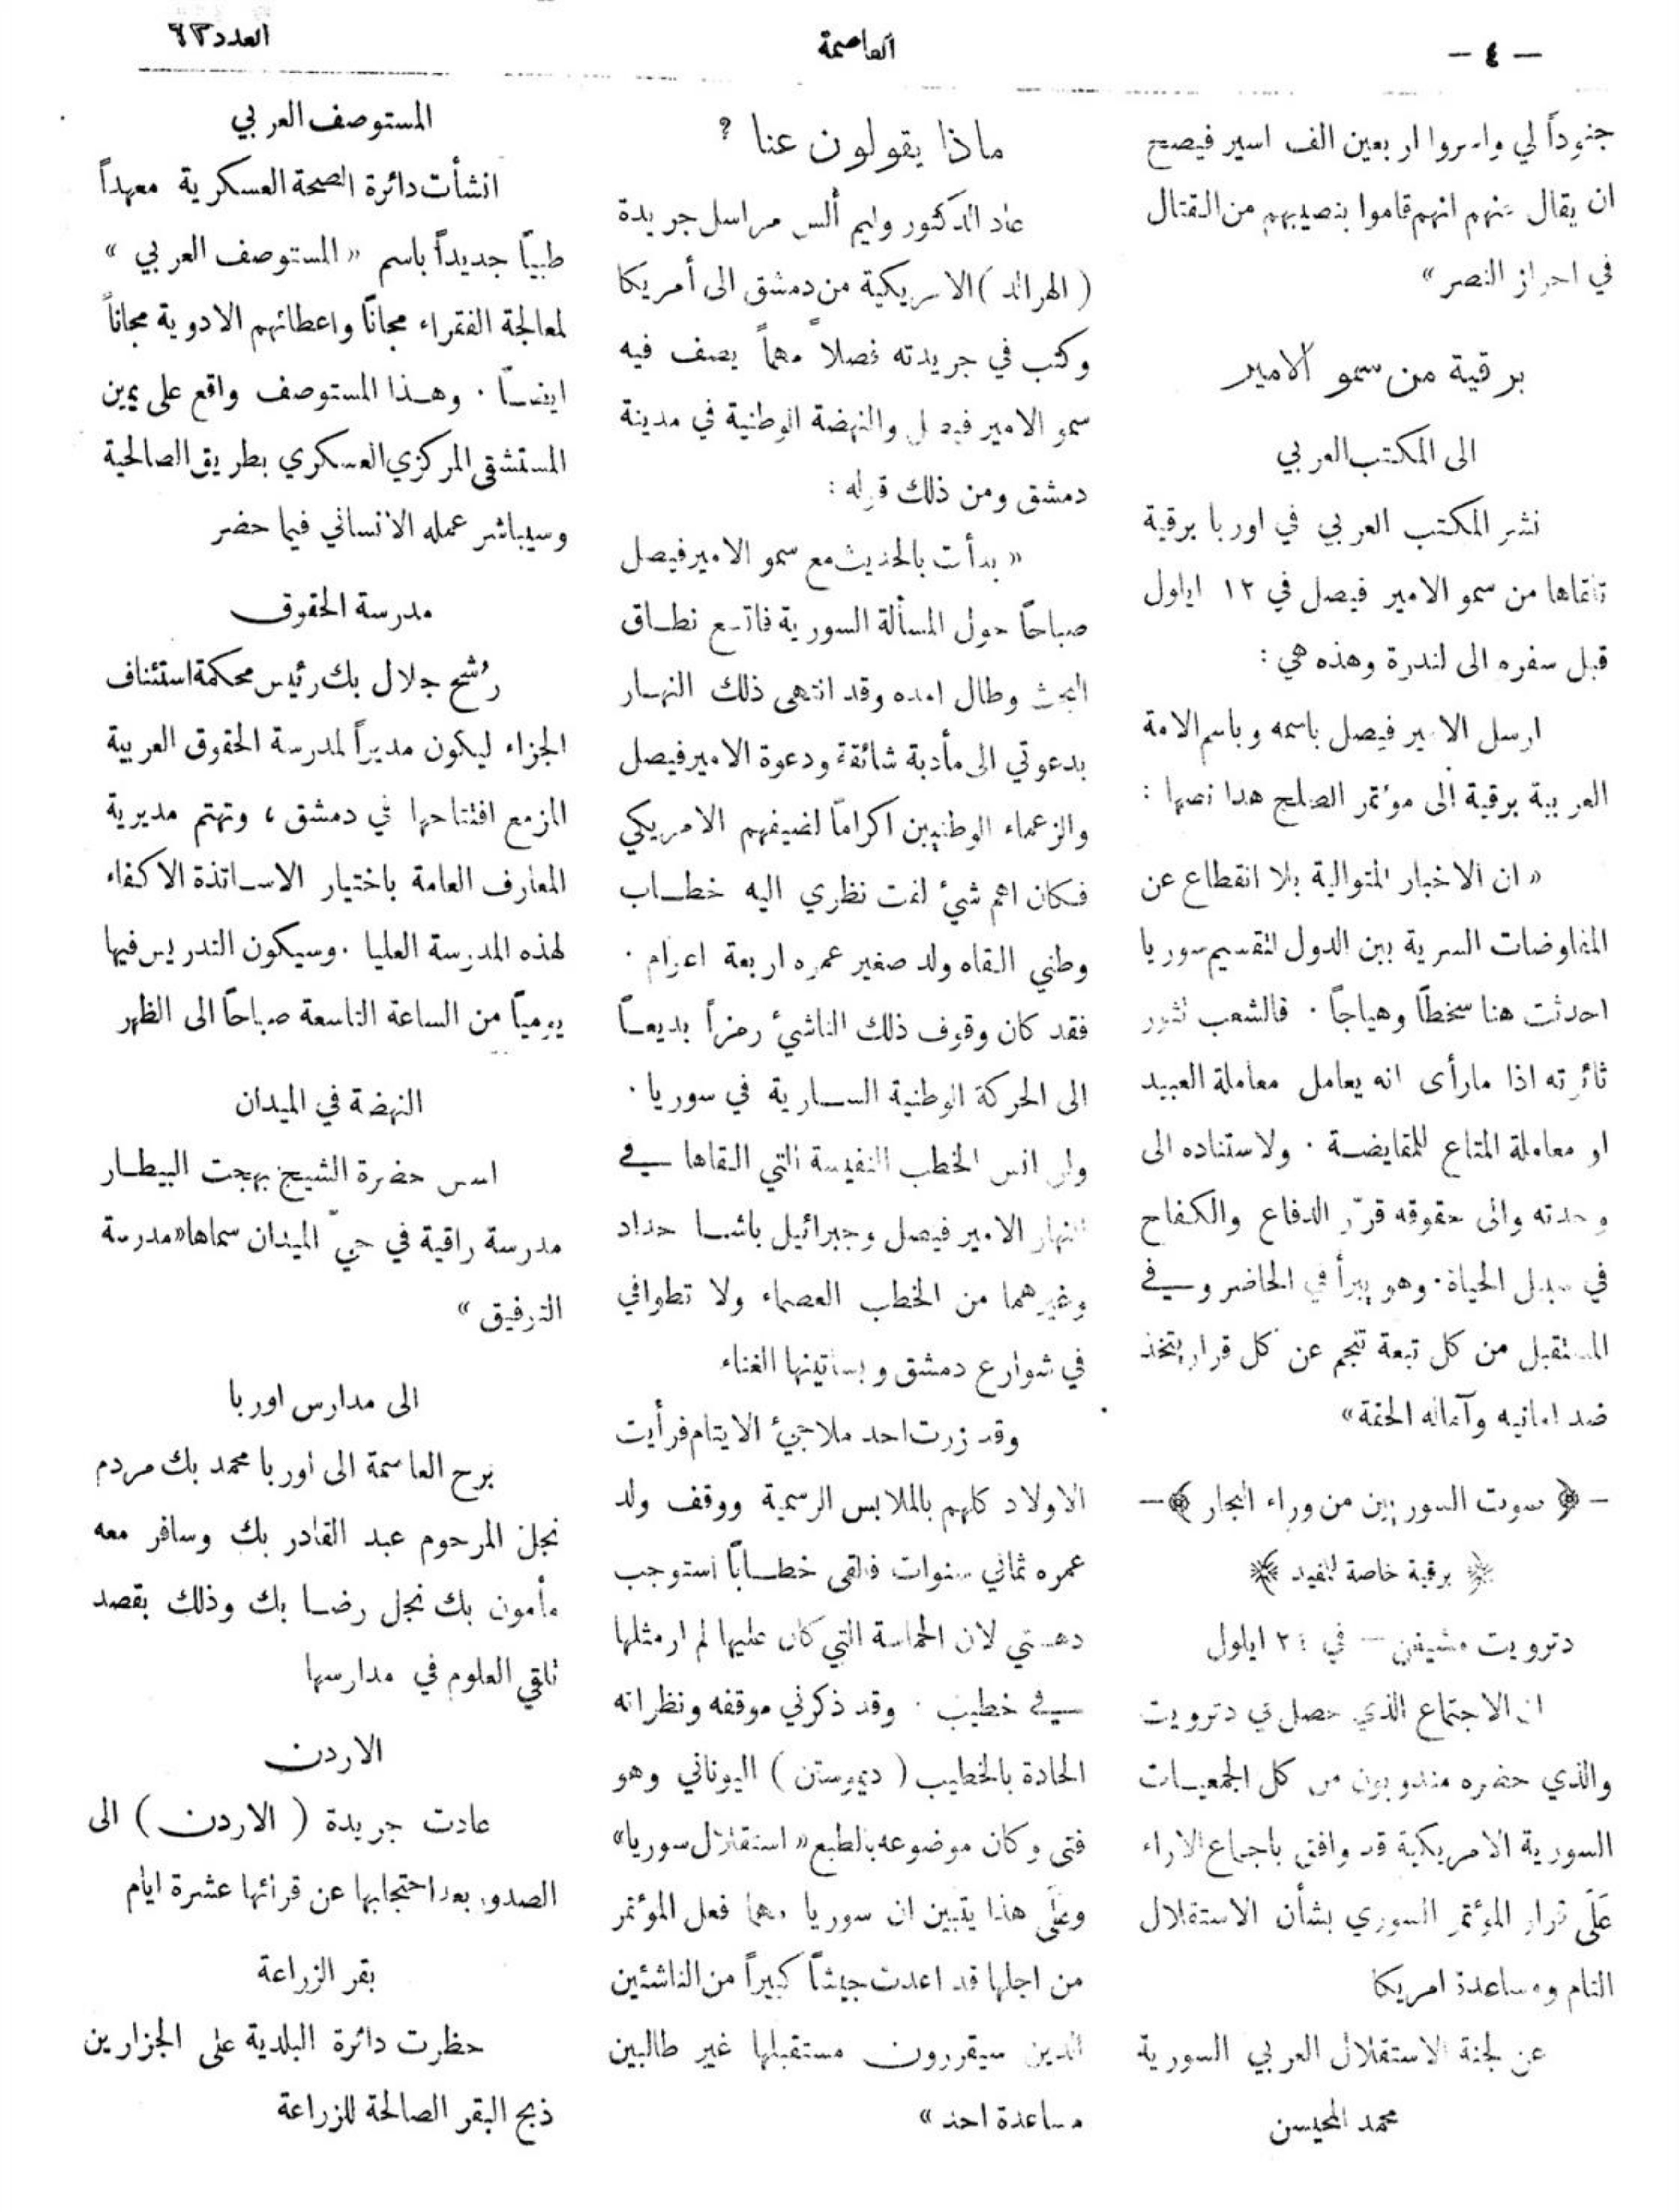 — ٤ —
العاصمة
العدد ٦٣
جنوداً لي واسروا اربعين الف اسير فيصح
ان يقال عنهم انهم قاموا بنصيبهم من القتال
في احراز النصر »
برقية من سمو الامير
الى المكتب العربي
نشر المكتب العربي في اوربا برقية
تلقاها من سمو الامير فيصل في ١٢ ايلول
قبل سفره الى لندرة وهذه هي :
ارسل الامير فيصل باسمه وباسم الامة
العربية برقية الى مؤتمر الصلح هذا نصها :
« ان الاخبار المتوالية بلا انقطاع عن
المفاوضات السرية بين الدول لتقسيم سوريا
احدثت هنا سخطاً وهياجاً . فالشعب تثور
ثائرته اذا مارأى انه يعامل معاملة العبيد
او معاملة المتاع للمقايضة . ولاستناده الى
وحدته والى حقوقه قرّر الدفاع والكفاح
في سبيل الحياة . وهو يبرأ في الحاضر وفي
المستقبل من كل تبعة تنجم عن كل قرار يتخذ
ضد امانيه وآماله الحقة »
— ﴿ صوت السوريين من وراء البحار ﴾ —
﴿ برقية خاصة للمفيد ﴾
دترويت مشيغن — في ٢٤ ايلول
ان الاجتماع الذي حصل في دترويت
والذي حضره مندوبون من كل الجمعيات
السورية الامريكية قد وافق باجماع الاراء
عَلَى قرار المؤتمر السوري بشأن الاستقلال
التام ومساعدة امريكا
عن لجنة الاستقلال العربي السورية
محمد المحيسن
ماذا يقولون عنا ؟
عاد الدكتور وليم ألس مراسل جريدة
( الهرالد ) الامريكية من دمشق الى أمريكا
وكتب في جريدته فصلاً مهماً يصف فيه
سمو الامير فيصل والنهضة الوطنية في مدينة
دمشق ومن ذلك قوله :
« بدأت بالحديث مع سمو الامير فيصل
صباحاً حول المسألة السورية فاتسع نطاق
البحث وطال امده وقد انتهى ذلك النهار
بدعوتي الى مأدبة شائقة ودعوة الامير فيصل
والزعماء الوطنيين اكراماً لضيفهم الامريكي
فكان اهم شئ لفت نظري اليه خطاب
وطني القاه ولد صغير عمره اربعة اعوام .
فقد كان وقوف ذلك الناشئ رمزاً بديعاً
الى الحركة الوطنية السارية في سوريا .
ولن انس الخطب النفيسة التي القاها في
النهار الامير فيصل وجبرائيل باشا حداد
وغيرهما من الخطب العصماء ولا تطوافي
في شوارع دمشق وبساتينها الغناء
وقد زرت احد ملاجئ الايتام فرأيت
الاولاد كلهم بالملابس الرسمية ووقف ولد
عمره ثماني سنوات فالقى خطاباً استوجب
دهشتي لان الحماسة التي كان عليها لم ار مثلها
في خطيب . وقد ذكرني موقفه ونظراته
الحادة بالخطيب ( ديموستن ) اليوناني وهو
فتى وكان موضوعه بالطبع « استقلال سوريا »
وعَلَى هذا يتبين ان سوريا مهما فعل المؤتمر
من اجلها قد اعدت جيشاً كبيراً من الناشئين
الذين سيقررون مستقبلها غير طالبين
مساعدة احد »
المستوصف العربي
انشأت دائرة الصحة العسكرية معهداً
طبيّاً جديداً باسم « المستوصف العربي »
لمعالجة الفقراء مجاناً واعطائهم الادوية مجاناً
ايضاً . وهذا المستوصف واقع على يمين
المستشفى المركزي العسكري بطريق الصالحية
وسيباشر عمله الانساني فيما حضر
مدرسة الحقوق
رُشح جلال بك رئيس محكمة استئناف
الجزاء ليكون مديراً لمدرسة الحقوق العربية
المزمع افتتاحها في دمشق ، وتهتم مديرية
المعارف العامة باختيار الاساتذة الاكفاء
لهذه المدرسة العليا . وسيكون التدريس فيها
يومياً من الساعة التاسعة صباحاً الى الظهر
النهضة في الميدان
اسس حضرة الشيخ بهجت البيطار
مدرسة راقية في حيّ الميدان سماها « مدرسة
التوفيق »
الى مدارس اوربا
برح العاصمة الى اوربا محمد بك مردم
نجل المرحوم عبد القادر بك وسافر معه
مأمون بك نجل رضا بك وذلك بقصد
تلقي العلوم في مدارسها
الاردن
عادت جريدة ( الاردن ) الى
الصدور بعد احتجابها عن قرائها عشرة ايام
بقر الزراعة
حظرت دائرة البلدية على الجزارين
ذبح البقر الصالحة للزراعة